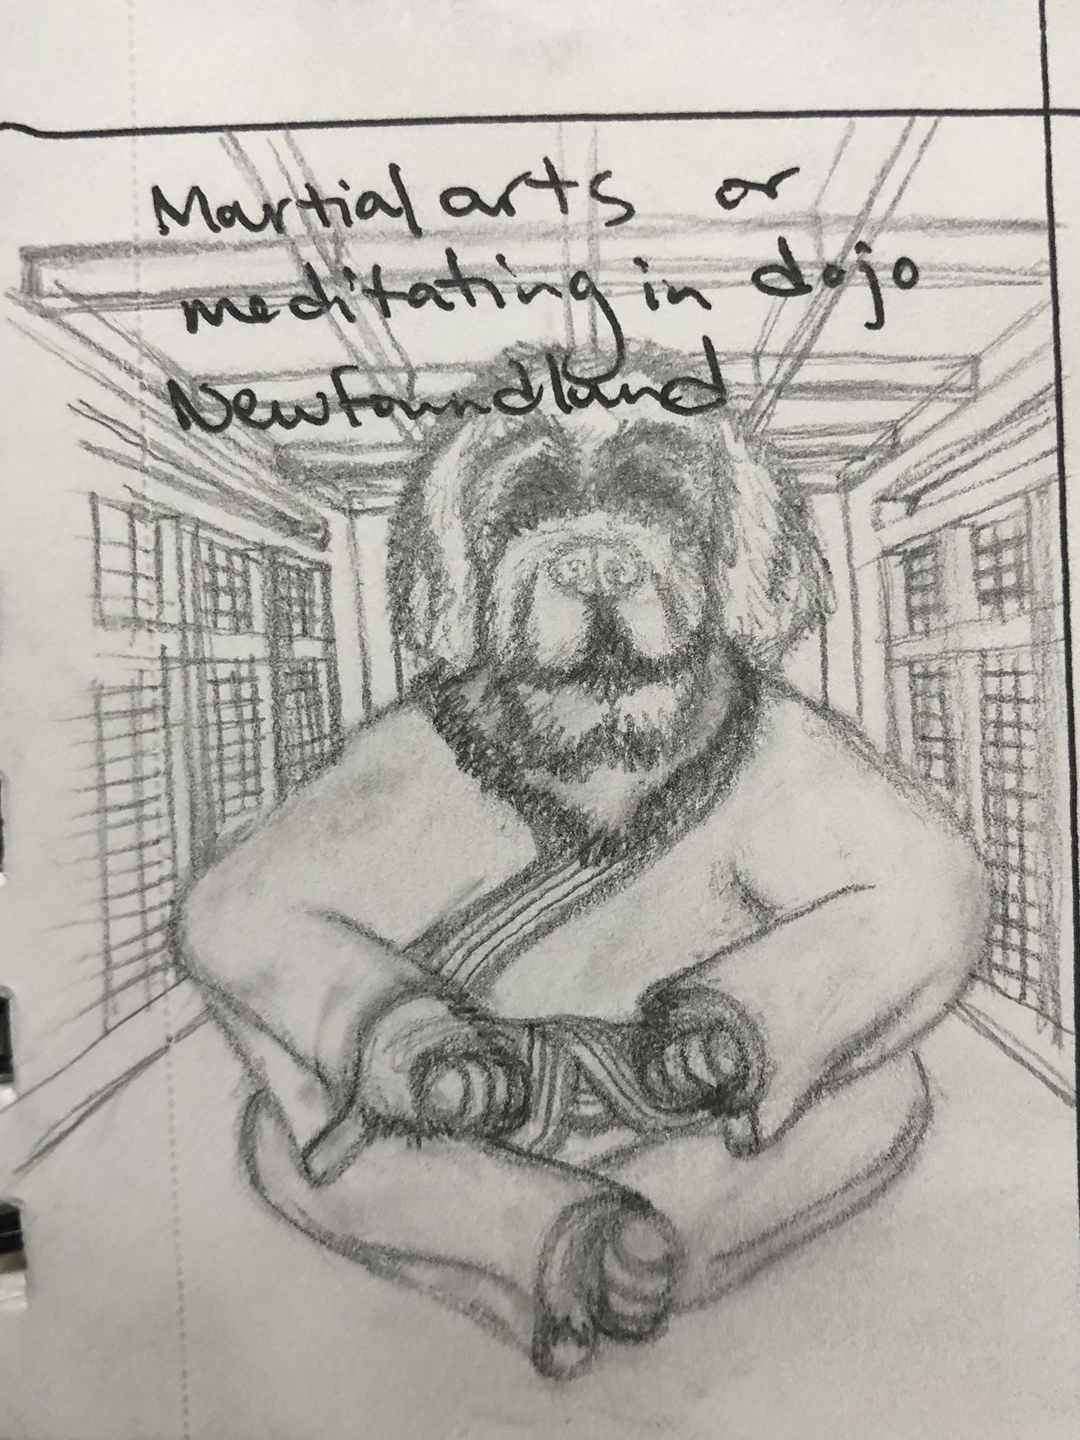 Martial arts or
meditating in dojo
Newfoundland